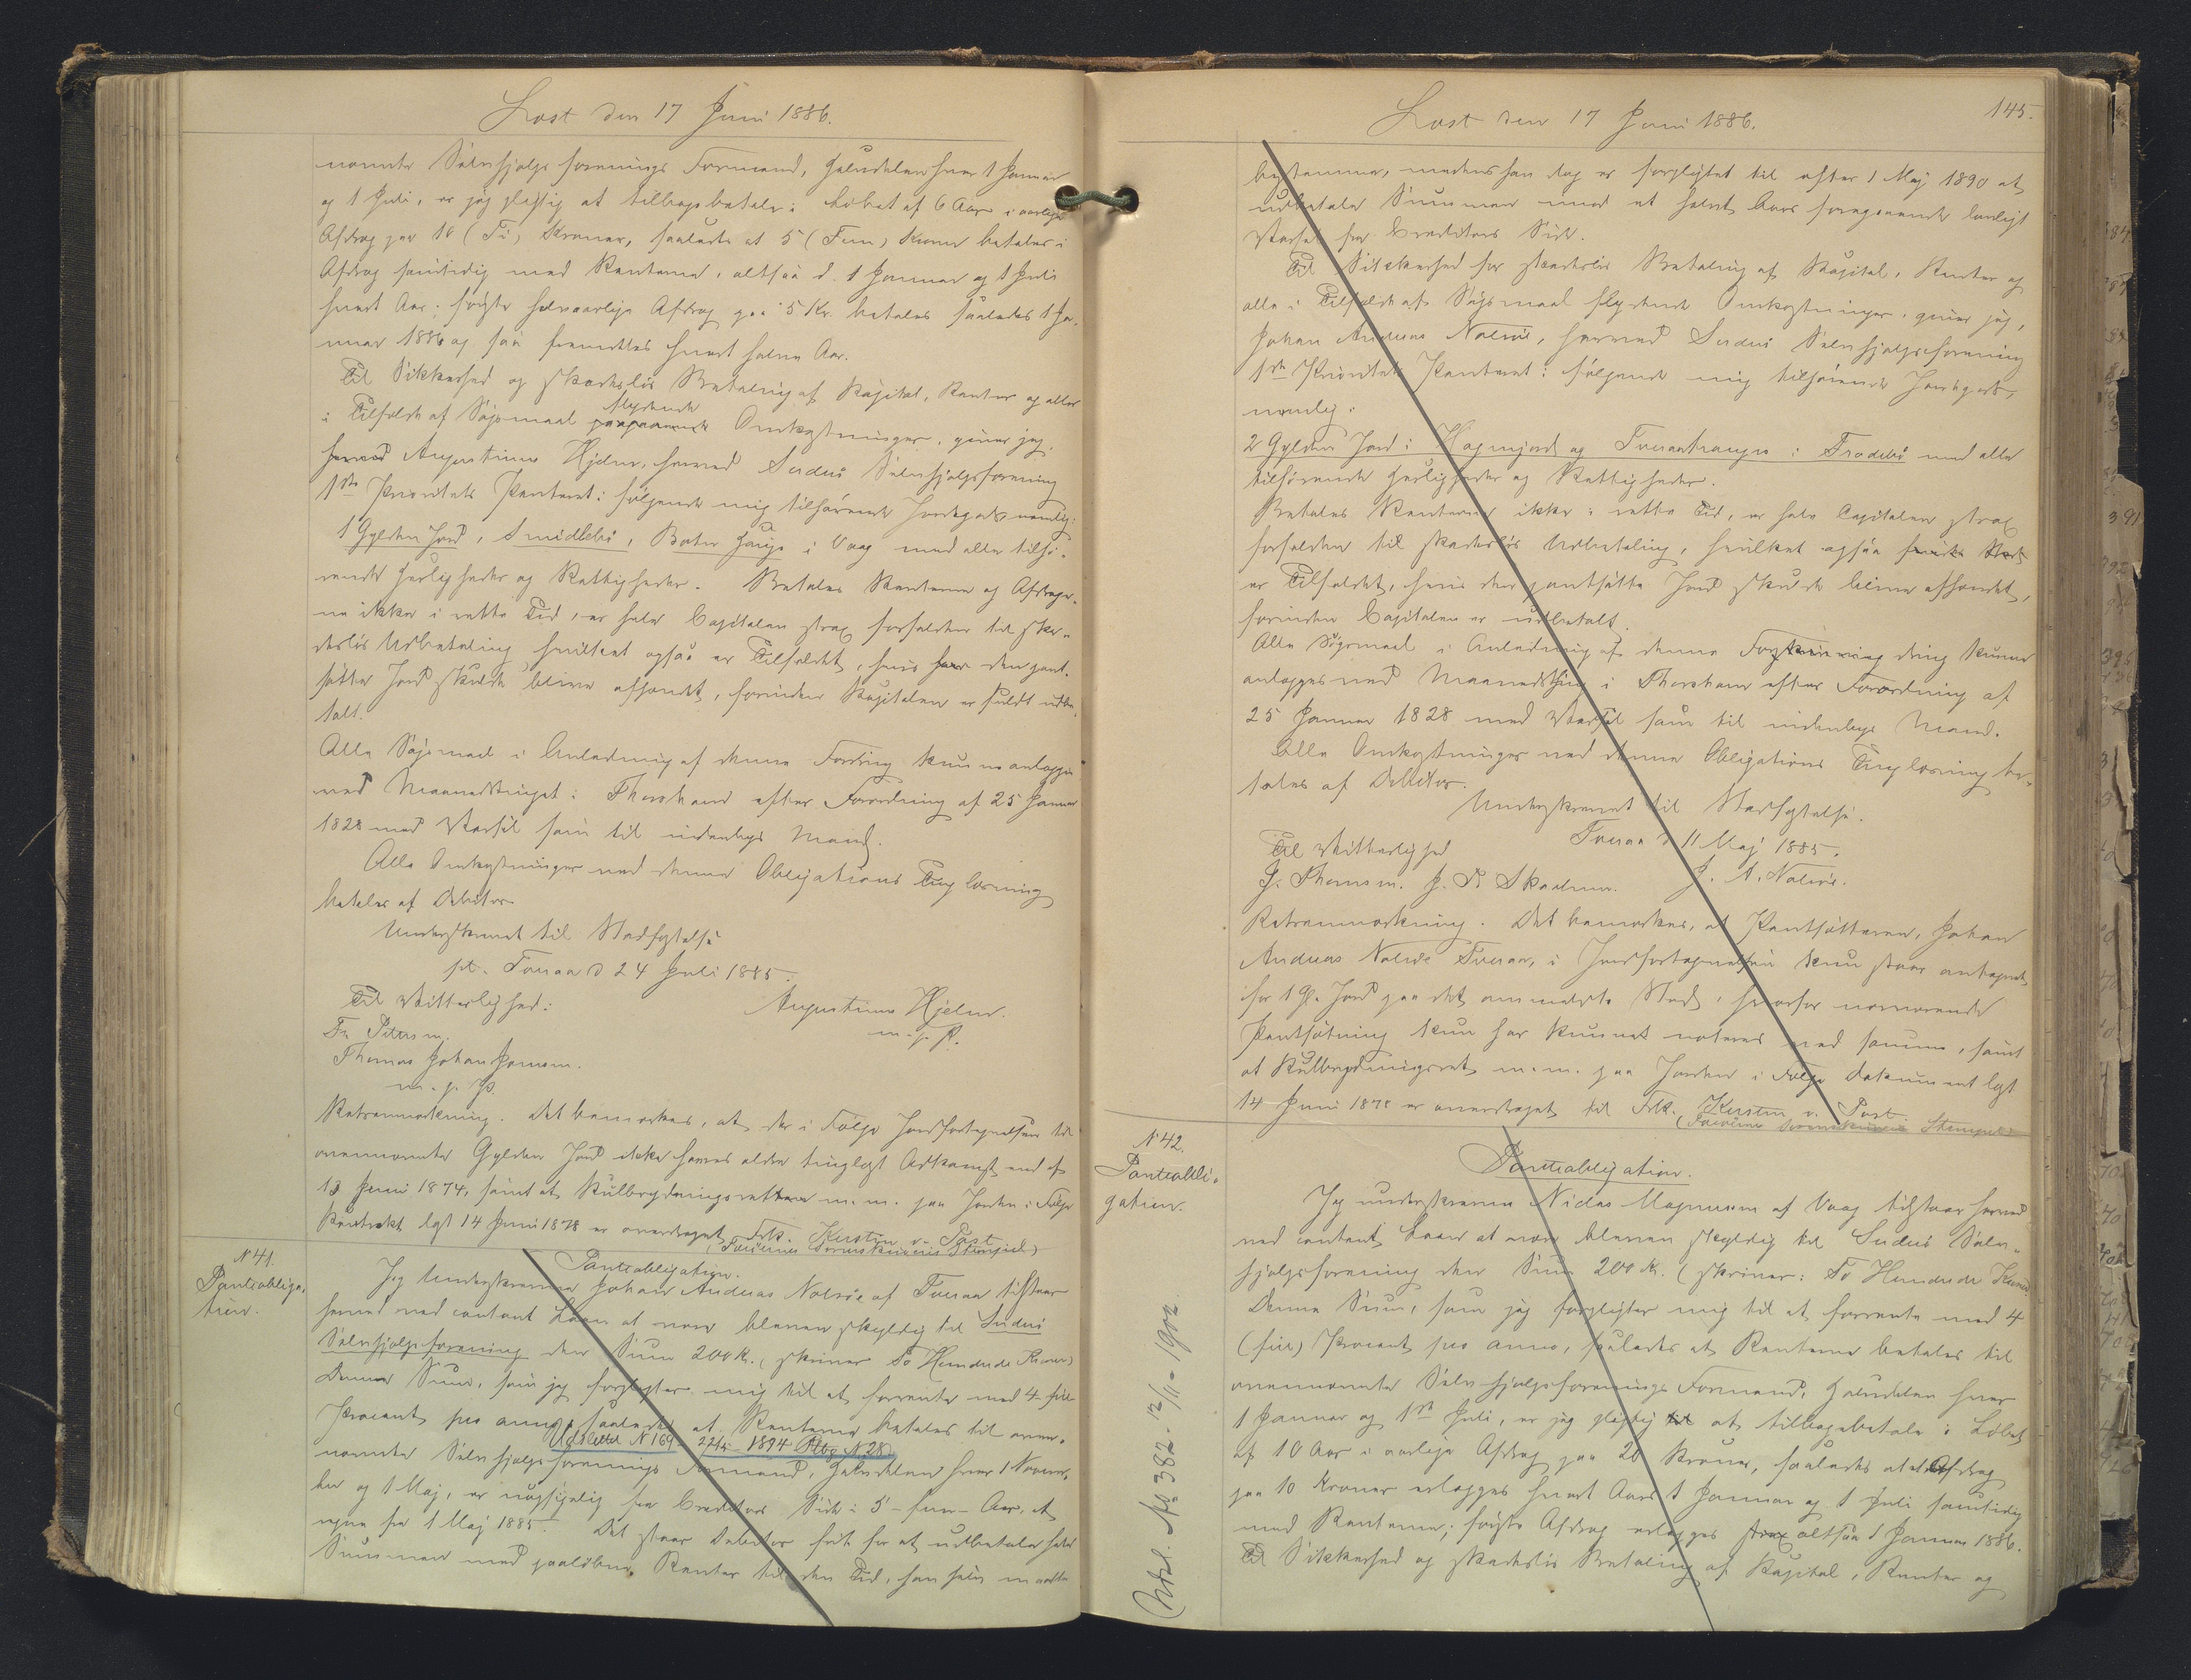 Læst den 17 Juni 1886.
nævnte Selvhjælps forenings Formand, halvdelen hver 1 Januar
og 1 Juli, er jeg pligtig at tilbagebetale i Løbet af 6 Aar i aarlige
Afdrag paa 10 (Ti) Kroner, saaledes at 5 (Fem) Kroner betales i
Afdrag samtidig med Renterne, altsaa d. 1 Januar og 1 Juli
hvert Aar; første halvaarlige Afdrag paa 5 Kr. betales saaledes 1 Ja-
nuar 1886 og saa fremdeles hvert halve Aar.
Til Sikkerhed og skadesløs Betaling af Kapital, Renter og alle
i Tilfælde af Søgsmaal flydende Omkostninger, giver jeg,
herved Augustinus Hjelm, herved Suderø Selvhjælpsforening
1ste Prioritets Panteret i følgende mig tilhørende Jordegods, nemlig:
1 Gylden Jord, i Vaag med alle tilhø-
rende Herligheder og Rettigheder. Betales Renterne og Afdrage-
ne ikke i rette Tid, er hele Capitalen strax forfalden til ska-
desløs Udbetaling hvilket ogsaa er Tilfældet, hvis den pant-
satte Jord skulde blive afhændet, forinden Kapitalen er fuldt udbe-
talt.
Alle Søgsmaal i Anledning af denne Fordring kunne anlægges
ved Maanedstinget i Thorshavn efter Forordning af 25 Januar
1828 med Varsel som til indenbys Mand.
Alle Omkostninger ved denne Obligations Tinglæsning
betales af Debitor
Underskrevet til Stadfæstelse
pt. Tveraa d 24 Juli 1885.
Til Vitterlighed: Augustinus Hjelm.
Fr. Petersen. m. p. P.
Thomas Johan Jensen.
m. p. P.
Retsanmærkning. Det bemærkes, at der i Følge Jordfortegnelsen til
ovennævnte Gylden Jord ikke haves ældre tinglyst Adkomst end af
13 Juni 1874, samt at Kulbrydningsretten m.m. paa Jorden i Følge
Kontrakt lyst 14 Juni 1878 er overdraget Frk. Kerstin v. Post
N 41.
Panteobliga-
tion.
Panteobligation.
Jeg Underskrevne Johan Andreas Nolsøe af Tveraa tilstaar
herved ved contant Laan at være bleven skyldig til Suderø
Selvhjælpsforening den Sum 200 Kr. (skriver To Hundrede Kroner)
Denne Sum, som jeg forpligter mig til at forrente med 4 fire
Procent pro anno, saaledes at Renterne betales til oven-
Udslettet N 169 22/5 1894 Ptbg. N 28
nævnte Selvhjælpsforenings Formand, Halvdelen hver 1 Novem-
ber og 1 Maj, er uopsigelig fra Creditors Side i 5 - fem - Aar, at
regne fra 1 Maj 1885. Det staar Debitor frit for at udbetale hele
Summen med paaløbne Renter til den Tid, han selv maatte
145.
Læst den 17 Juni 1886.
bestemme, medens han dog er forpligtet til efter 1 Maj 1890 at
udbetale Summen mod et halvt Aars foregaaende lovligt
Varsel fra Creditors Side.
Til Sikkerhed for skadesløs Betaling af Kapital, Renter og
alle i Tilfælde af Søgsmaal flydende Omkostninger, giver jeg,
Johan Andreas Nolsøe, herved Suderø Selvhjælpsforening
1ste Prioritets Panteret i følgende mig tilhørende Jordegods,
nemlig:
2 Gylden Jord i Hagmjord og i Frodebø med alle
tilhørende Herligheder og Rettigheder.
Betales Renterne ikke i rette Tid, er hele Capitalen strax
forfalden til skadesløs Udbetaling, hvilket ogsaa
er Tilfældet, hvis den pantsatte Jord skulde blive afhændet,
forinden Capitalen er udbetalt.
Alle Søgsmaal i Anledning af denne Fordring kunne
anlægges ved Maanedsting i Thorshavn efter Forordning af
25 Januar 1828 med Varsel som til indenbys Mand.
Alle Omkostninger ved denne Obligations Tinglæsning be-
tales af Debitor.
Underskrevet til Stadfæstelse.
Tveraa d 11 Maj 1885.
Til Vitterlighed
J. Thomsen. J. A. Nolsøe.
Retsanmærkning. Det bemærkes, at Pantsætteren, Johan
Andreas Nolsøe Tveraa, i Jordfortegnelsen kun staar antegnet
for 1 Gl. Jord paa det anmeldte Sted, hvorfor nærværende
Pantsætning kun har kunnet noteres ved samme, samt
at Kulbrydningsret m.m. paa Jorden i Følge Dokument lyst
14 Juni 1878 er overdraget til Frk. Kerstin v. Post.
N 42.
Panteobli-
gation.
Panteobligation.
Jeg underskrevne Niclas Magnussen af Vaag tilstaar herved
ved contant Laan at være bleven skyldig til Suderø Selv-
hjælpsforening den Sum 200 Kr. (skriver: To Hundrede Kroner
Denne Sum, som jeg forpligter mig til at forrente med 4
(fire) Procent pro anno, saaledes at Renterne betales til
ovennævnte Selvhjælpsforenings Formand, Halvdelen hver
1 Januar og 1ste Juli, er jeg pligtig til at tilbagebetale i Løbet
af 10 Aar i aarlige Afdrag paa 20 Kroner, saaledes at et Afdrag
paa 10 Kroner erlægges hvert Aars 1 Januar og 1 Juli samtidig
med Renterne; første Afdrag erlægges strax altsaa 1 Januar 1886.
Til Sikkerhed og skadesløs Betaling af Kapital, Renter og
Udsl. No 382- 12/11- 1902